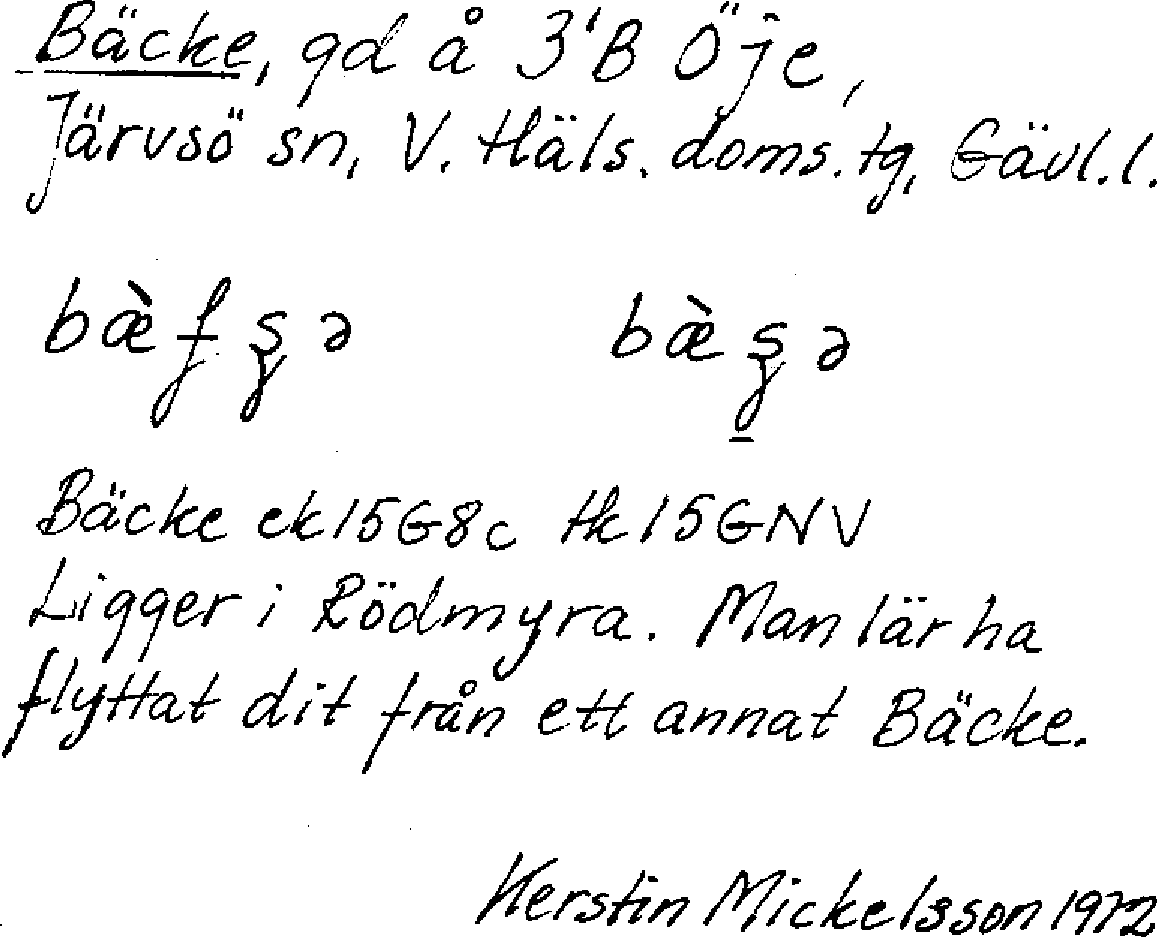 Bäcke, gd å 3¹B Öje,
Järvsö sn, V. Häls. doms. tg, Gävl. l.
Bäcke ek 15G8c tk 15GNV
Ligger i Rödmyra. Man lär ha
flyttat dit från ett annat Bäcke.
Kerstin Mickelsson 1972